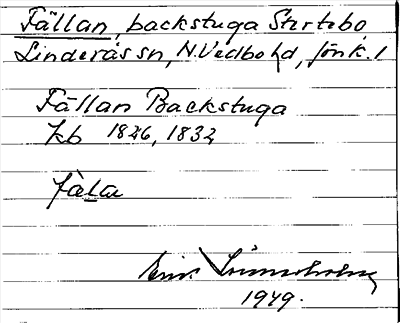 Fällan, backstuga Stertebo,
Linderås sn, N. Vedbo hd, Jönk. l
Fällan Backstuga
Kb 1826, 1832
1949.